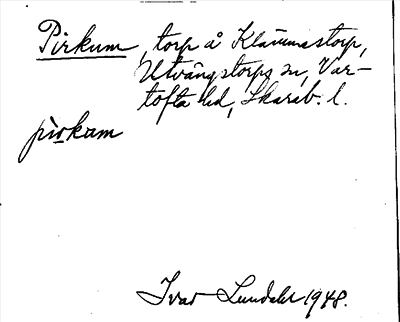 Pirkum, torp å Klämmestorp,
Utvängstorps sn, Var-
tofta hd, Skarab. l.
pirkum
Ivar Lundahl 1948.